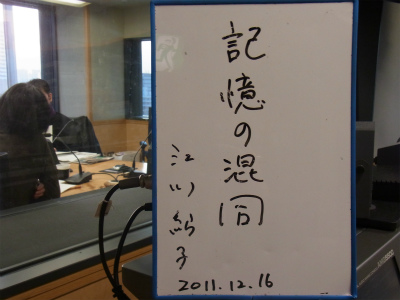 記憶の混同
江川紹子
2011.12.16